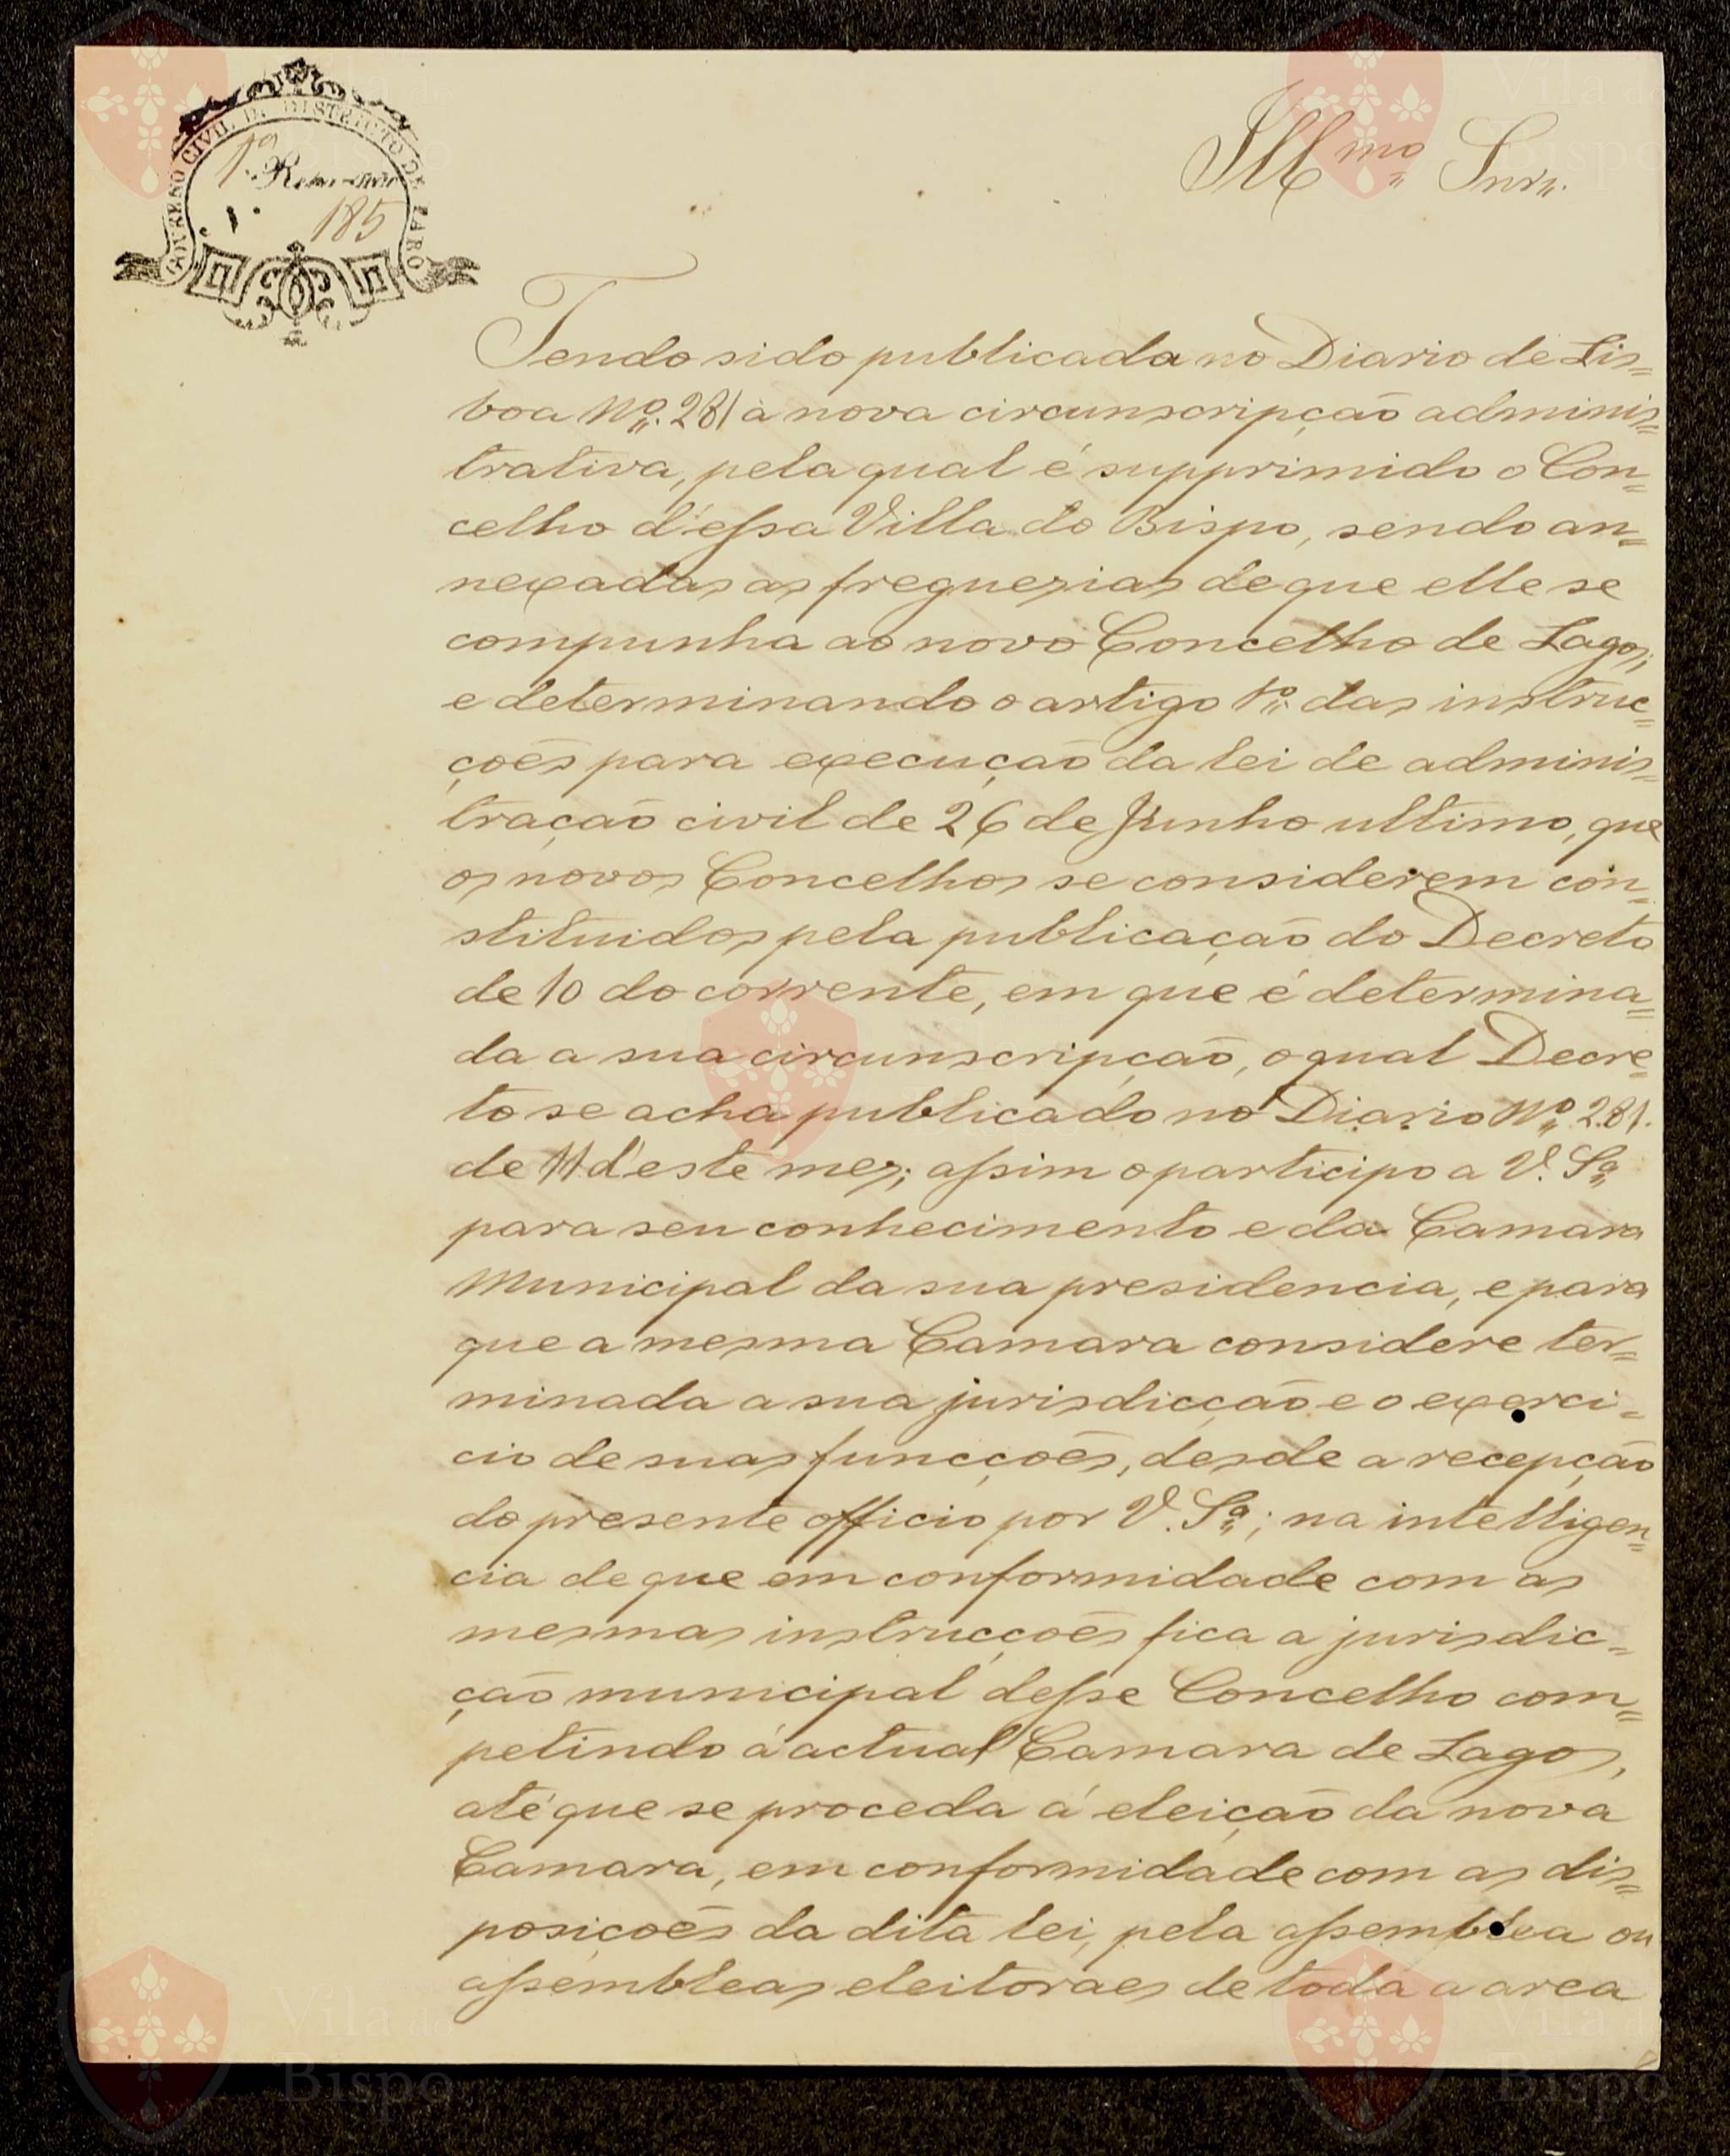 GOVERNO CIVIL DO DISTRICTO DE FARO
1ª Repartição
Nº 185
Illmo Snr.
Tendo sido publicada no Diario de Lis=
boa Nº 281 a nova circunscripção adminis=
trativa, pela qual é supprimido o Con=
celho d'essa Villa do Bispo, sendo an=
nexadas as freguezias de que elle se
compunha ao novo Concelho de Lagos;
e determinando o artigo 1º das instruc=
çoẽs para execução da lei de adminis=
tração civil de 26 de Junho ultimo, que
os novos Concelhos se considerem con=
stituidos pela publicação do Decreto
de 10 do corrente, em que é determina=
da a sua circunscripção, o qual Decre=
to se acha publicado no Diario Nº 281.
de 11 d'este mez; assim o participo a V. Sª
para seu conhecimento e da Camara
Municipal da sua presidencia, e para
que a mesma Camara considere ter=
minada a sua jurisdicção e o exerci=
cio de suas funcçoẽs, desde a recepção
do presente officio por V. Sª; na intelligen=
cia de que em conformidade com as
mesmas instrucçoẽs fica a jurisdic=
ção municipal desse Concelho com=
petindo á actual Camara de Lagos,
até que se proceda á eleição da nova
Camara, em conformidade com as dis=
posiçoẽs da dita lei, pela assemblea ou
assembleas eleitoraes de toda a area
Vila do
Bispo